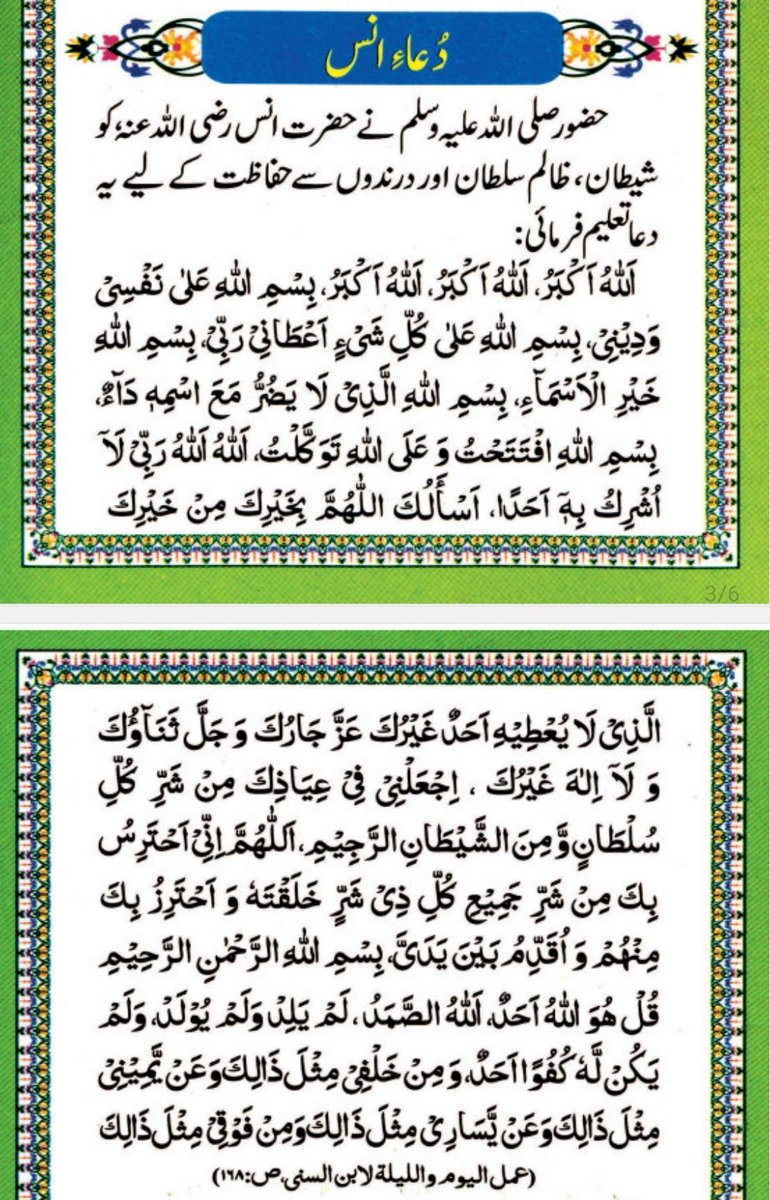 دُعاءِ انس
حضور صلی اللہ علیہ وسلم نے حضرت انس رضی اللہ عنہ، کو
شیطان، ظالم سلطان اور درندوں سے حفاظت کے لیے یہ
دعا تعلیم فرمائی:
اَللهُ اَكْبَرُ، اَللهُ اَكْبَرُ، اَللهُ اَكْبَرُ، بِسْمِ اللهِ عَلٰى نَفْسِيْ
وَدِيْنِيْ، بِسْمِ اللهِ عَلٰى كُلِّ شَيْءٍ اَعْطَانِيْ رَبِّيْ، بِسْمِ اللهِ
خَيْرِ الْاَسْمَآءِ، بِسْمِ اللهِ الَّذِيْ لَا يَضُرُّ مَعَ اسْمِهٖ دَآءٌ،
بِسْمِ اللهِ افْتَتَحْتُ وَ عَلَى اللهِ تَوَكَّلْتُ، اَللهُ اَللهُ رَبِّيْ لَآ
اُشْرِكُ بِهٖٓ اَحَدًا، اَسْأَلُكَ اللّٰهُمَّ بِخَيْرِكَ مِنْ خَيْرِكَ
3/6
الَّذِيْ لَا يُعْطِيْهِ اَحَدٌ غَيْرُكَ عَزَّ جَارُكَ وَ جَلَّ ثَنَآؤُكَ
وَ لَآ اِلٰهَ غَيْرُكَ ، اِجْعَلْنِيْ فِيْ عِيَاذِكَ مِنْ شَرِّ كُلِّ
سُلْطَانٍ وَّمِنَ الشَّيْطَانِ الرَّجِيْمِ، اَللّٰهُمَّ اِنِّيْ اَحْتَرِسُ
بِكَ مِنْ شَرِّ جَمِيْعِ كُلِّ ذِيْ شَرٍّ خَلَقْتَهٗ وَ اَحْتَرِزُ بِكَ
مِنْهُمْ وَ اُقَدِّمُ بَيْنَ يَدَيَّ، بِسْمِ اللهِ الرَّحْمٰنِ الرَّحِيْمِ
قُلْ هُوَ اللهُ اَحَدٌ، اَللهُ الصَّمَدُ، لَمْ يَلِدْ وَلَمْ يُوْلَدْ، وَلَمْ
يَكُنْ لَّهٗ كُفُوًا اَحَدٌ، وَ مِنْ خَلْفِيْ مِثْلَ ذَالِكَ وَعَنْ يَّمِيْنِيْ
مِثْلَ ذَالِكَ وَعَنْ يَّسَارِيْ مِثْلَ ذَالِكَ وَمِنْ فَوْقِيْ مِثْلَ ذَالِكَ
(عمل اليوم والليلة لابن السني، ص: ١٦٨)